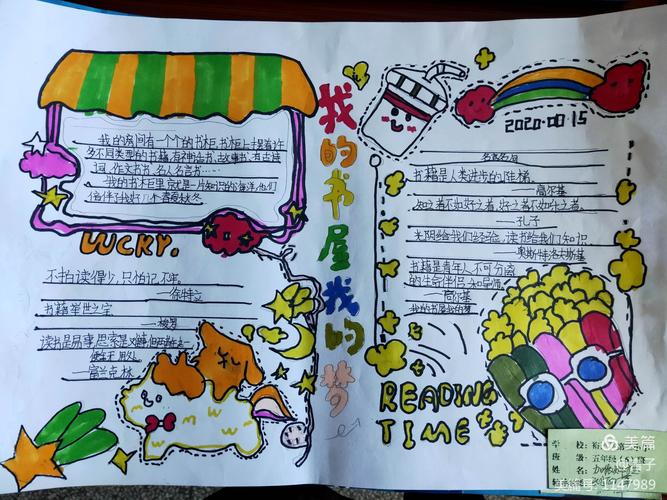 我的房间有一个个的书柜,书柜上摆着许
多不同类型的书籍,有神话书,故事书,有古诗
词,作文书,名人名言……
我的书柜里,就是一片知识的海洋,他们
陪伴了我好几个春夏秋冬
LUCKY.
不怕读得少,只怕记不牢。
——徐特立
书籍举世之宝
——梭罗
读书是易事,思索是
——富兰克林
我的书屋我的梦
2020.10.15
名言名句
书籍是人类进步的阶梯。
——高尔基
知之者不如好之者,好之者不如乐之者。
——孔子
光阴给我们经验,读书给我们知识。
——奥斯特洛夫斯基
书籍是青年人不可分离
的生命伴侣和导师。
——高尔基
我的书屋我的梦
READING
TIME
学 校:
班 级:五年级(6)班
姓 名:
美篇
美篇号:1147989